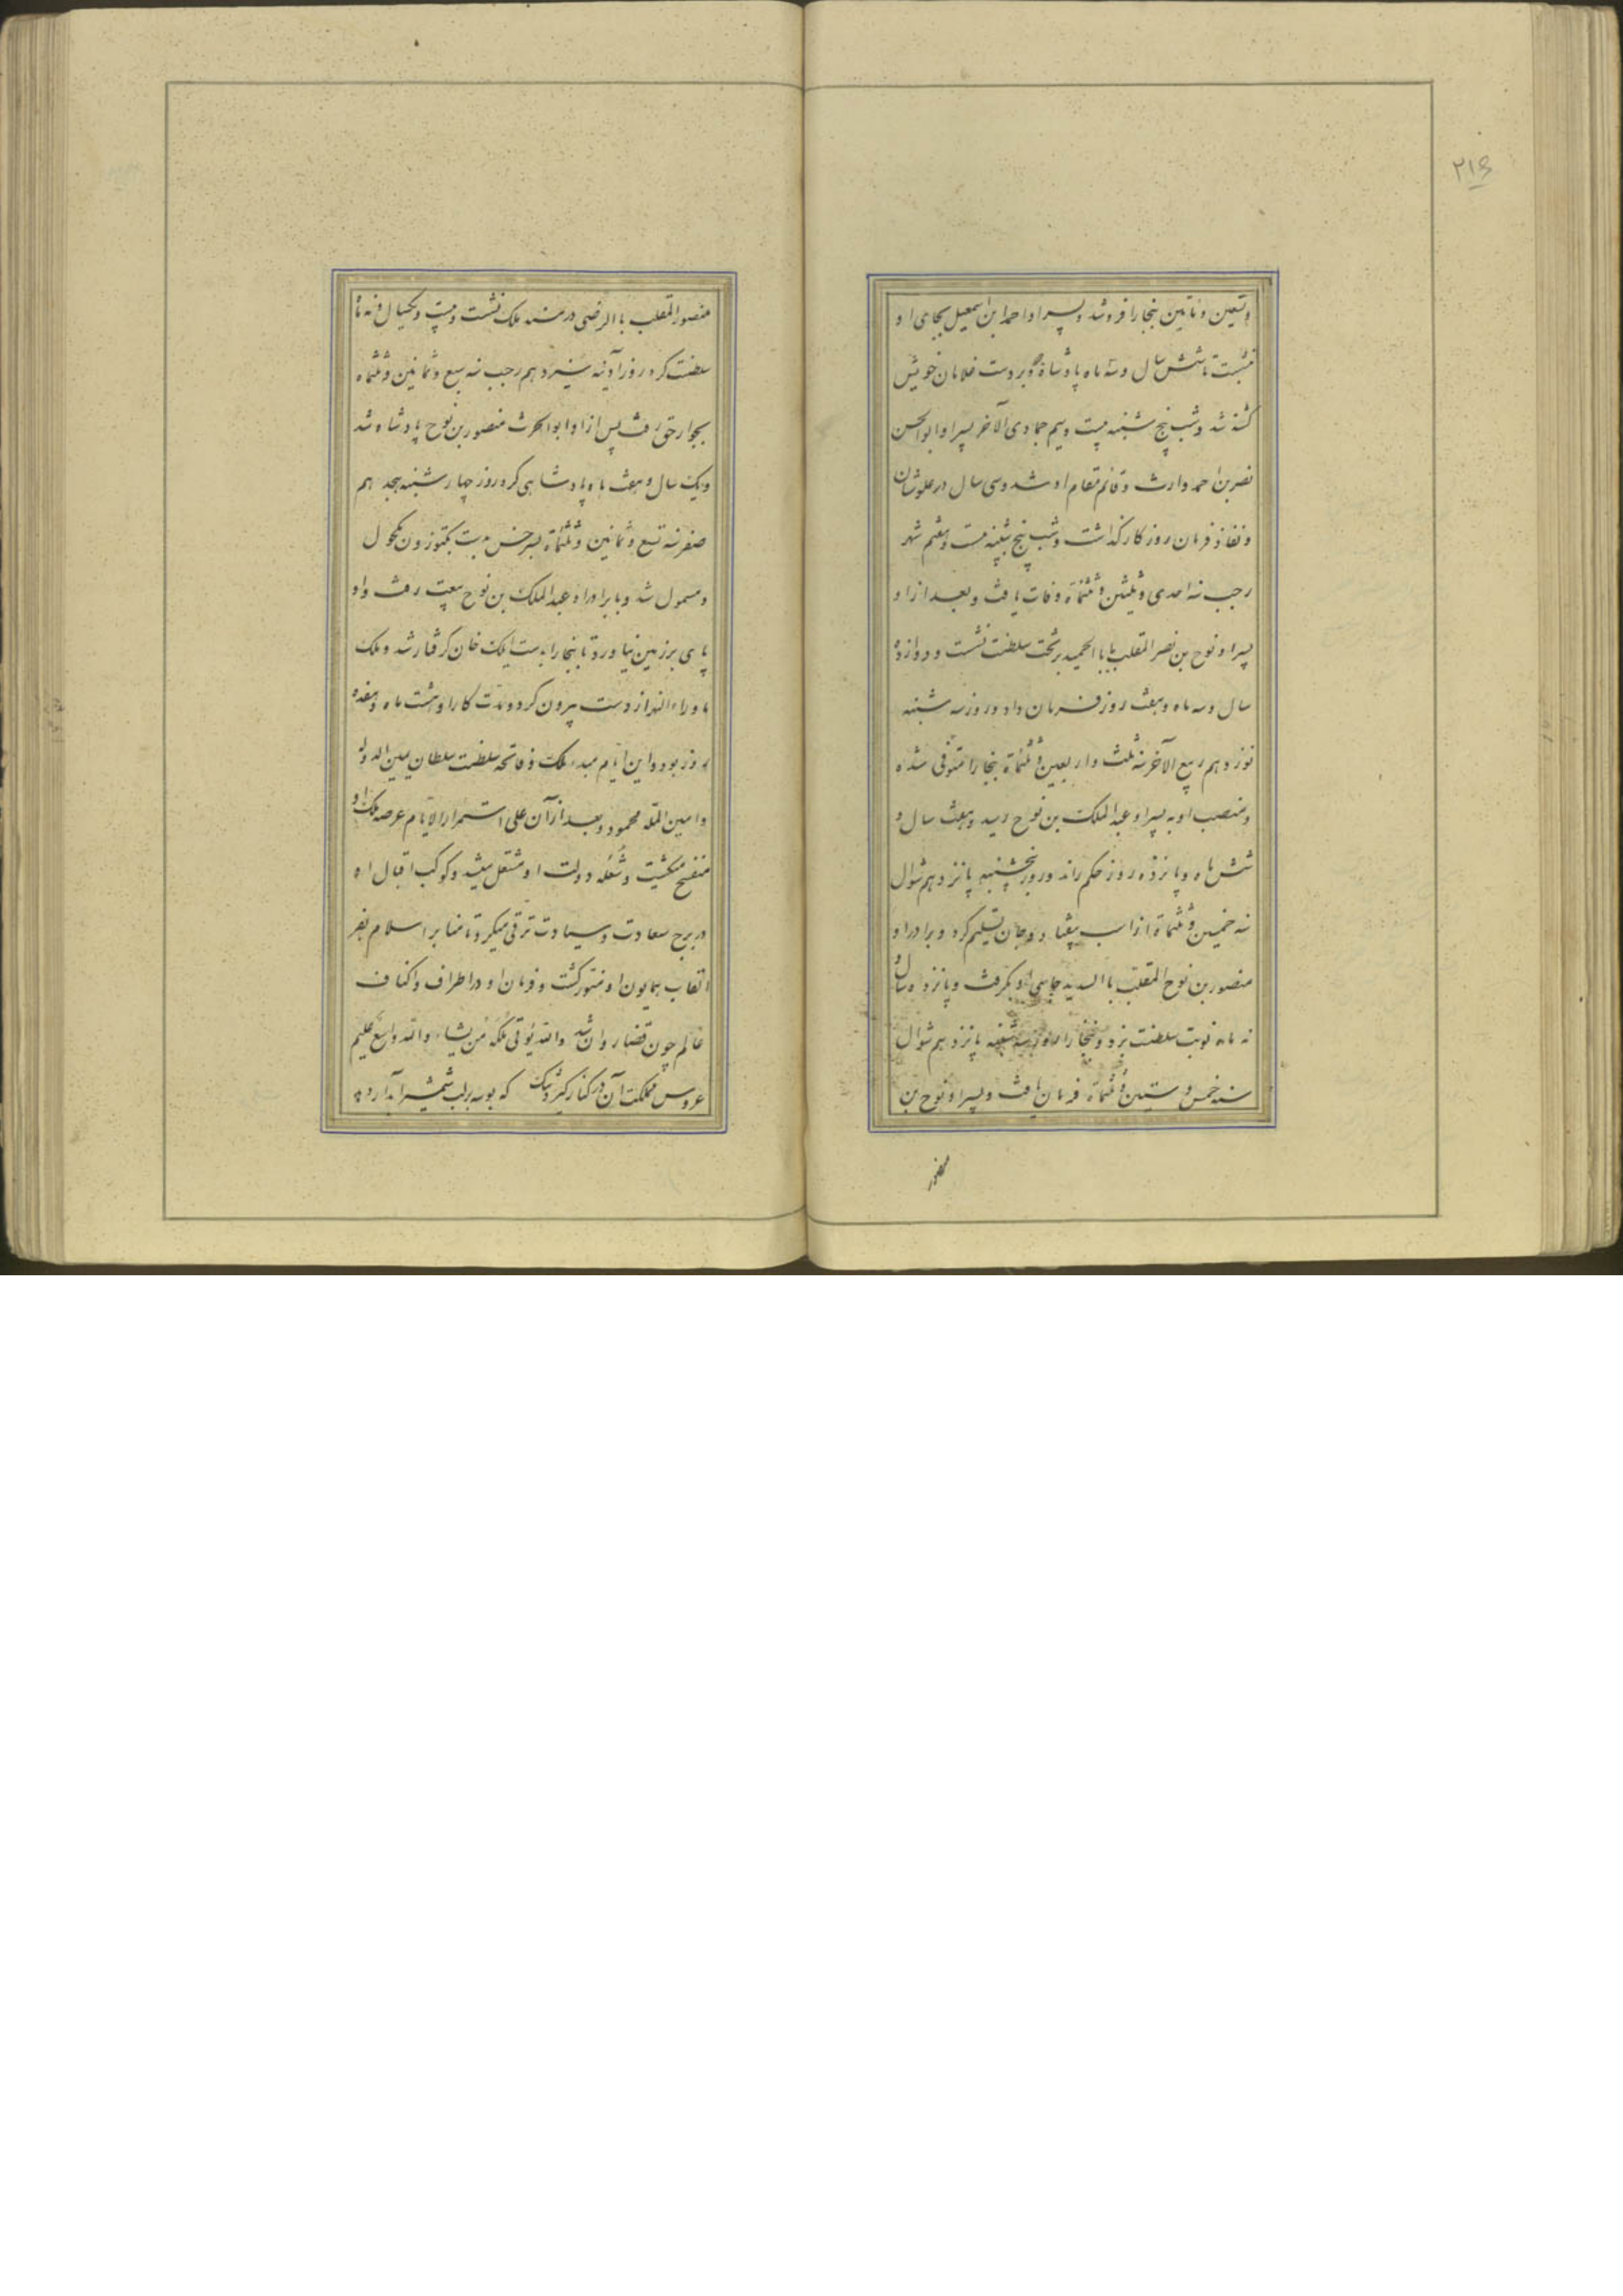 ۲۱۶
وتسعین و مأتین ببخارا فرو شد و پسر او احمد ابن اسمعیل بجای او
نشست تا شش سال و سه ماه پادشاه بود بر دست غلامان خویش
کشته شد و شب پنج شنبه بیست و سیم جمادی الآخر پسر او ابوالحسن
نصر بن احمد وارث و قائم مقام او شد و سی سال در علو شان
و نفاذ فرمان روزگار گذاشت و شب پنج شنبه بیست و هفتم شهر
رجب سنه احدی و ثلثین و ثلثمأة وفات یافت و بعد از او
پسر او نوح بن نصر الملقب بابا الحمید بر تخت سلطنت نشست و دوازده
سال و سه ماه و هفت روز فرمان داد و روز سه شنبه
نوزدهم ربیع الآخر سنه ثلث و اربعین و ثلثمأة ببخارا متوفی شده
و منصب او به پسر او عبد الملک بن نوح رسید و هفت سال و
شش ماه و پانزده روز حکم راند و روز پنجشنبه پانزدهم شوال
سنه خمسین و ثلثمأة از اسب بیفتاد و جان تسلیم کرد و برادر او
منصور بن نوح الملقب با السدید جای او بگرفت و پانزده سال و
نه ماه نوبت سلطنت بزد و ببخارا روز سه شنبه پانزدهم شوال
سنه خمس و ستین و ثلثمأة فرمان یافت و پسر او نوح بن
منصور
منصور الملقب با الرضی در مسند ملک نشست و بیست و یکسال و نه ماه
سلطنت کرد روز آدینه سیزدهم رجب سنه سبع و ثمانین و ثلثمأه
بجوار حق رفت پس از او ابو الحرث منصور بن نوح پادشاه شد
و یک سال و هفت ماه پادشاهی کرد و روز چهار شنبه هجدهم
صفر سنه تسع و ثمانین و ثلثمأة بسرخس بدست بکتوزون مکحول
و مسمول شد و با برادر او عبد الملک بن نوح بیعت رفت و او
پای بر زمین نیاورد تا ببخارا بدست ایلک خان گرفتار شد و ملک
ماوراء النهر از دست بیرون کرد و مدت کار او هشت ماه و هفده
روز بود و این ایام مبدء ملک و فاتحه سلطنت سلطان یمین الدوله
و امین المله محمود و بعد از آن علی استمرار الایام عرصه ملک او
منفسح میکشت و شعله دولت او مشتعل میشد و کوکب اقبال او
در برج سعادت و سیادت ترقی میکرد تا منابر اسلام بفر
القاب همایون او منور گشت و فرمان او در اطراف و اکناف
عالم چون قضا روان شد والله یؤتی ملکه من یشاء والله واسع علیم
عروس مملکت آن در کنار گیرد تنگ که بوسه بر لب شمشیر آبدار دهد